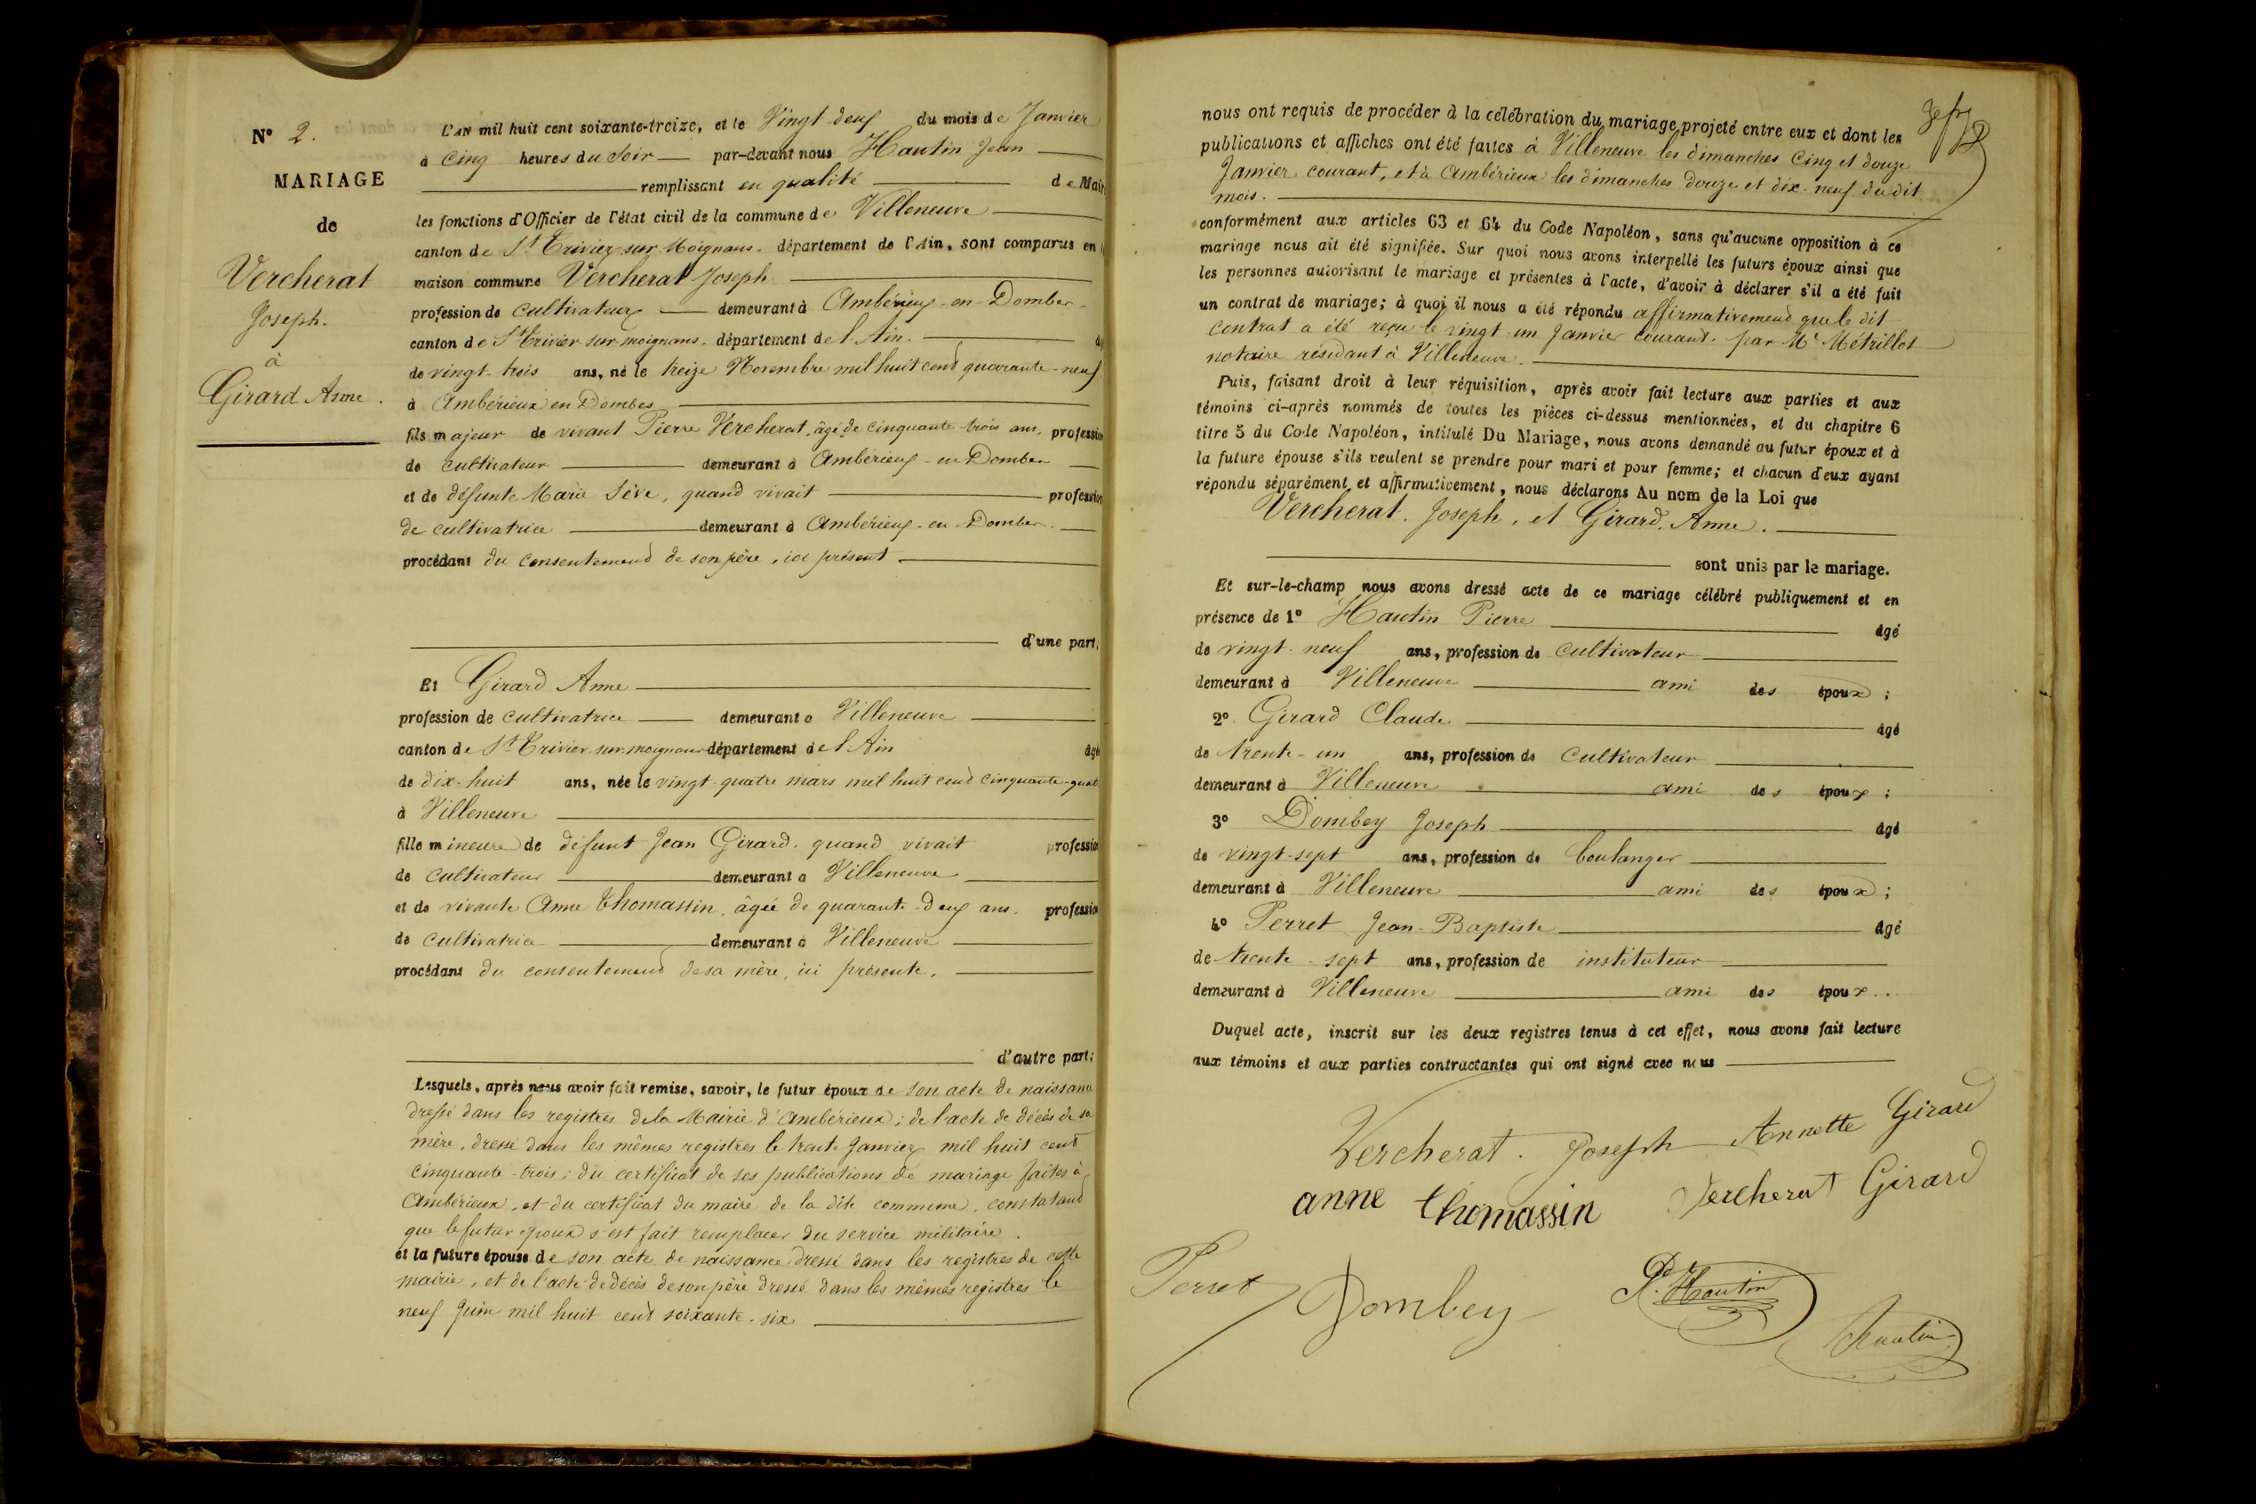 N° 2.
MARIAGE
de
Vercherat
Joseph.
à
Girard Anne.
L'AN mil huit cent soixante-treize, et le Vingt-deux du mois de Janvier
à Cinq heures du Soir par-devant nous Hautin Jean
remplissant en qualité de Mair
les fonctions d'Officier de l'état civil de la commune de Villeneuve
canton de St Trivier-sur-Moignans. département de l'Ain, sont comparus en
maison commune Vercherat Joseph
profession de cultivateur demeurant à Ambérieux-en-Dombes
canton de St Trivier-sur-moignans. département de l'Ain.
de vingt-trois ans, né le treize Novembre mil huit cent quarante-neuf
à Ambérieux en Dombes
fils majeur de vivant Pierre Vercherat, âgé de cinquante-trois ans, profession
de cultivateur demeurant à Ambérieux-en-Dombes
et de défunte Marie Sève, quand vivait profession
de cultivatrice demeurant à Ambérieux-en-Dombes.
procédant du consentement de son père, ici présent
d'une part,
Et Girard Anne
profession de cultivatrice demeurant à Villeneuve
canton de St Trivier-sur-moignans département de l'Ain âgé
de dix-huit ans, née le vingt-quatre mars mil huit cent cinquante-quat
à Villeneuve
fille mineure de défunt Jean Girard. quand vivait profession
de cultivateur demeurant à Villeneuve
et de vivante Anne Thomassin, âgée de quarante-deux ans. profession
de cultivatrice demeurant à Villeneuve
procédant du consentement de sa mère, ici présente.
d'autre part;
Lesquels, après nous avoir fait remise, savoir, le futur époux de son acte de naissance
dressé dans les registres de la Mairie d'Ambérieux; de l'acte de décès de sa
mère, dressé dans les mêmes registres le trente Janvier mil huit cent
cinquante-trois; du certificat de ses publications de mariage faites à
Ambérieux, et du certificat du maire de la dite commune, constatant
que le futur époux s'est fait remplacer du service militaire.
et la future épouse de son acte de naissance dressé dans les registres de cette
mairie, et de l'acte de décès de son père dressé dans les mêmes registres le
neuf Juin mil huit cent soixante-six
nous ont requis de procéder à la célébration du mariage projeté entre eux et dont les
publications et affiches ont été faites à Villeneuve les dimanches cinq et douze
Janvier courant, et à Ambérieux les dimanches douze et dix-neuf du dit
mois.
conformément aux articles 63 et 64 du Code Napoléon, sans qu'aucune opposition à ce
mariage nous ait été signifiée. Sur quoi nous avons interpellé les futurs époux ainsi que
les personnes autorisant le mariage et présentes à l'acte, d'avoir à déclarer s'il a été fait
un contrat de mariage; à quoi il nous a été répondu affirmativement que le dit
contrat a été reçu le vingt-un Janvier courant. par Me Métrillot
notaire résidant à Villeneuve.
Puis, faisant droit à leur réquisition, après avoir fait lecture aux parties et aux
témoins ci-après nommés de toutes les pièces ci-dessus mentionnées, et du chapitre 6
titre 5 du Code Napoléon, intitulé Du Mariage, nous avons demandé au futur époux et à
la future épouse s'ils veulent se prendre pour mari et pour femme; et chacun d'eux ayant
répondu séparément et affirmativement, nous déclarons Au nom de la Loi que
Vercherat. Joseph, et Girard. Anne.
sont unis par le mariage.
Et sur-le-champ nous avons dressé acte de ce mariage célébré publiquement et en
présence de 1° Hautin Pierre âgé
de vingt-neuf ans, profession de cultivateur
demeurant à Villeneuve ami des époux;
2° Girard Claude âgé
de trente-un ans, profession de cultivateur
demeurant à Villeneuve ami des époux;
3° Dombey Joseph âgé
de vingt-sept ans, profession de boulanger
demeurant à Villeneuve ami des époux;
4° Perret Jean-Baptiste âgé
de trente-sept ans, profession de instituteur
demeurant à Villeneuve ami des époux.
Duquel acte, inscrit sur les deux registres tenus à cet effet, nous avons fait lecture
aux témoins et aux parties contractantes qui ont signé avec nous
Vercherat. Joseph Annette Girard
anne thomassin Vercherat Girard
Perret Dombey P. Hautin
Hautin